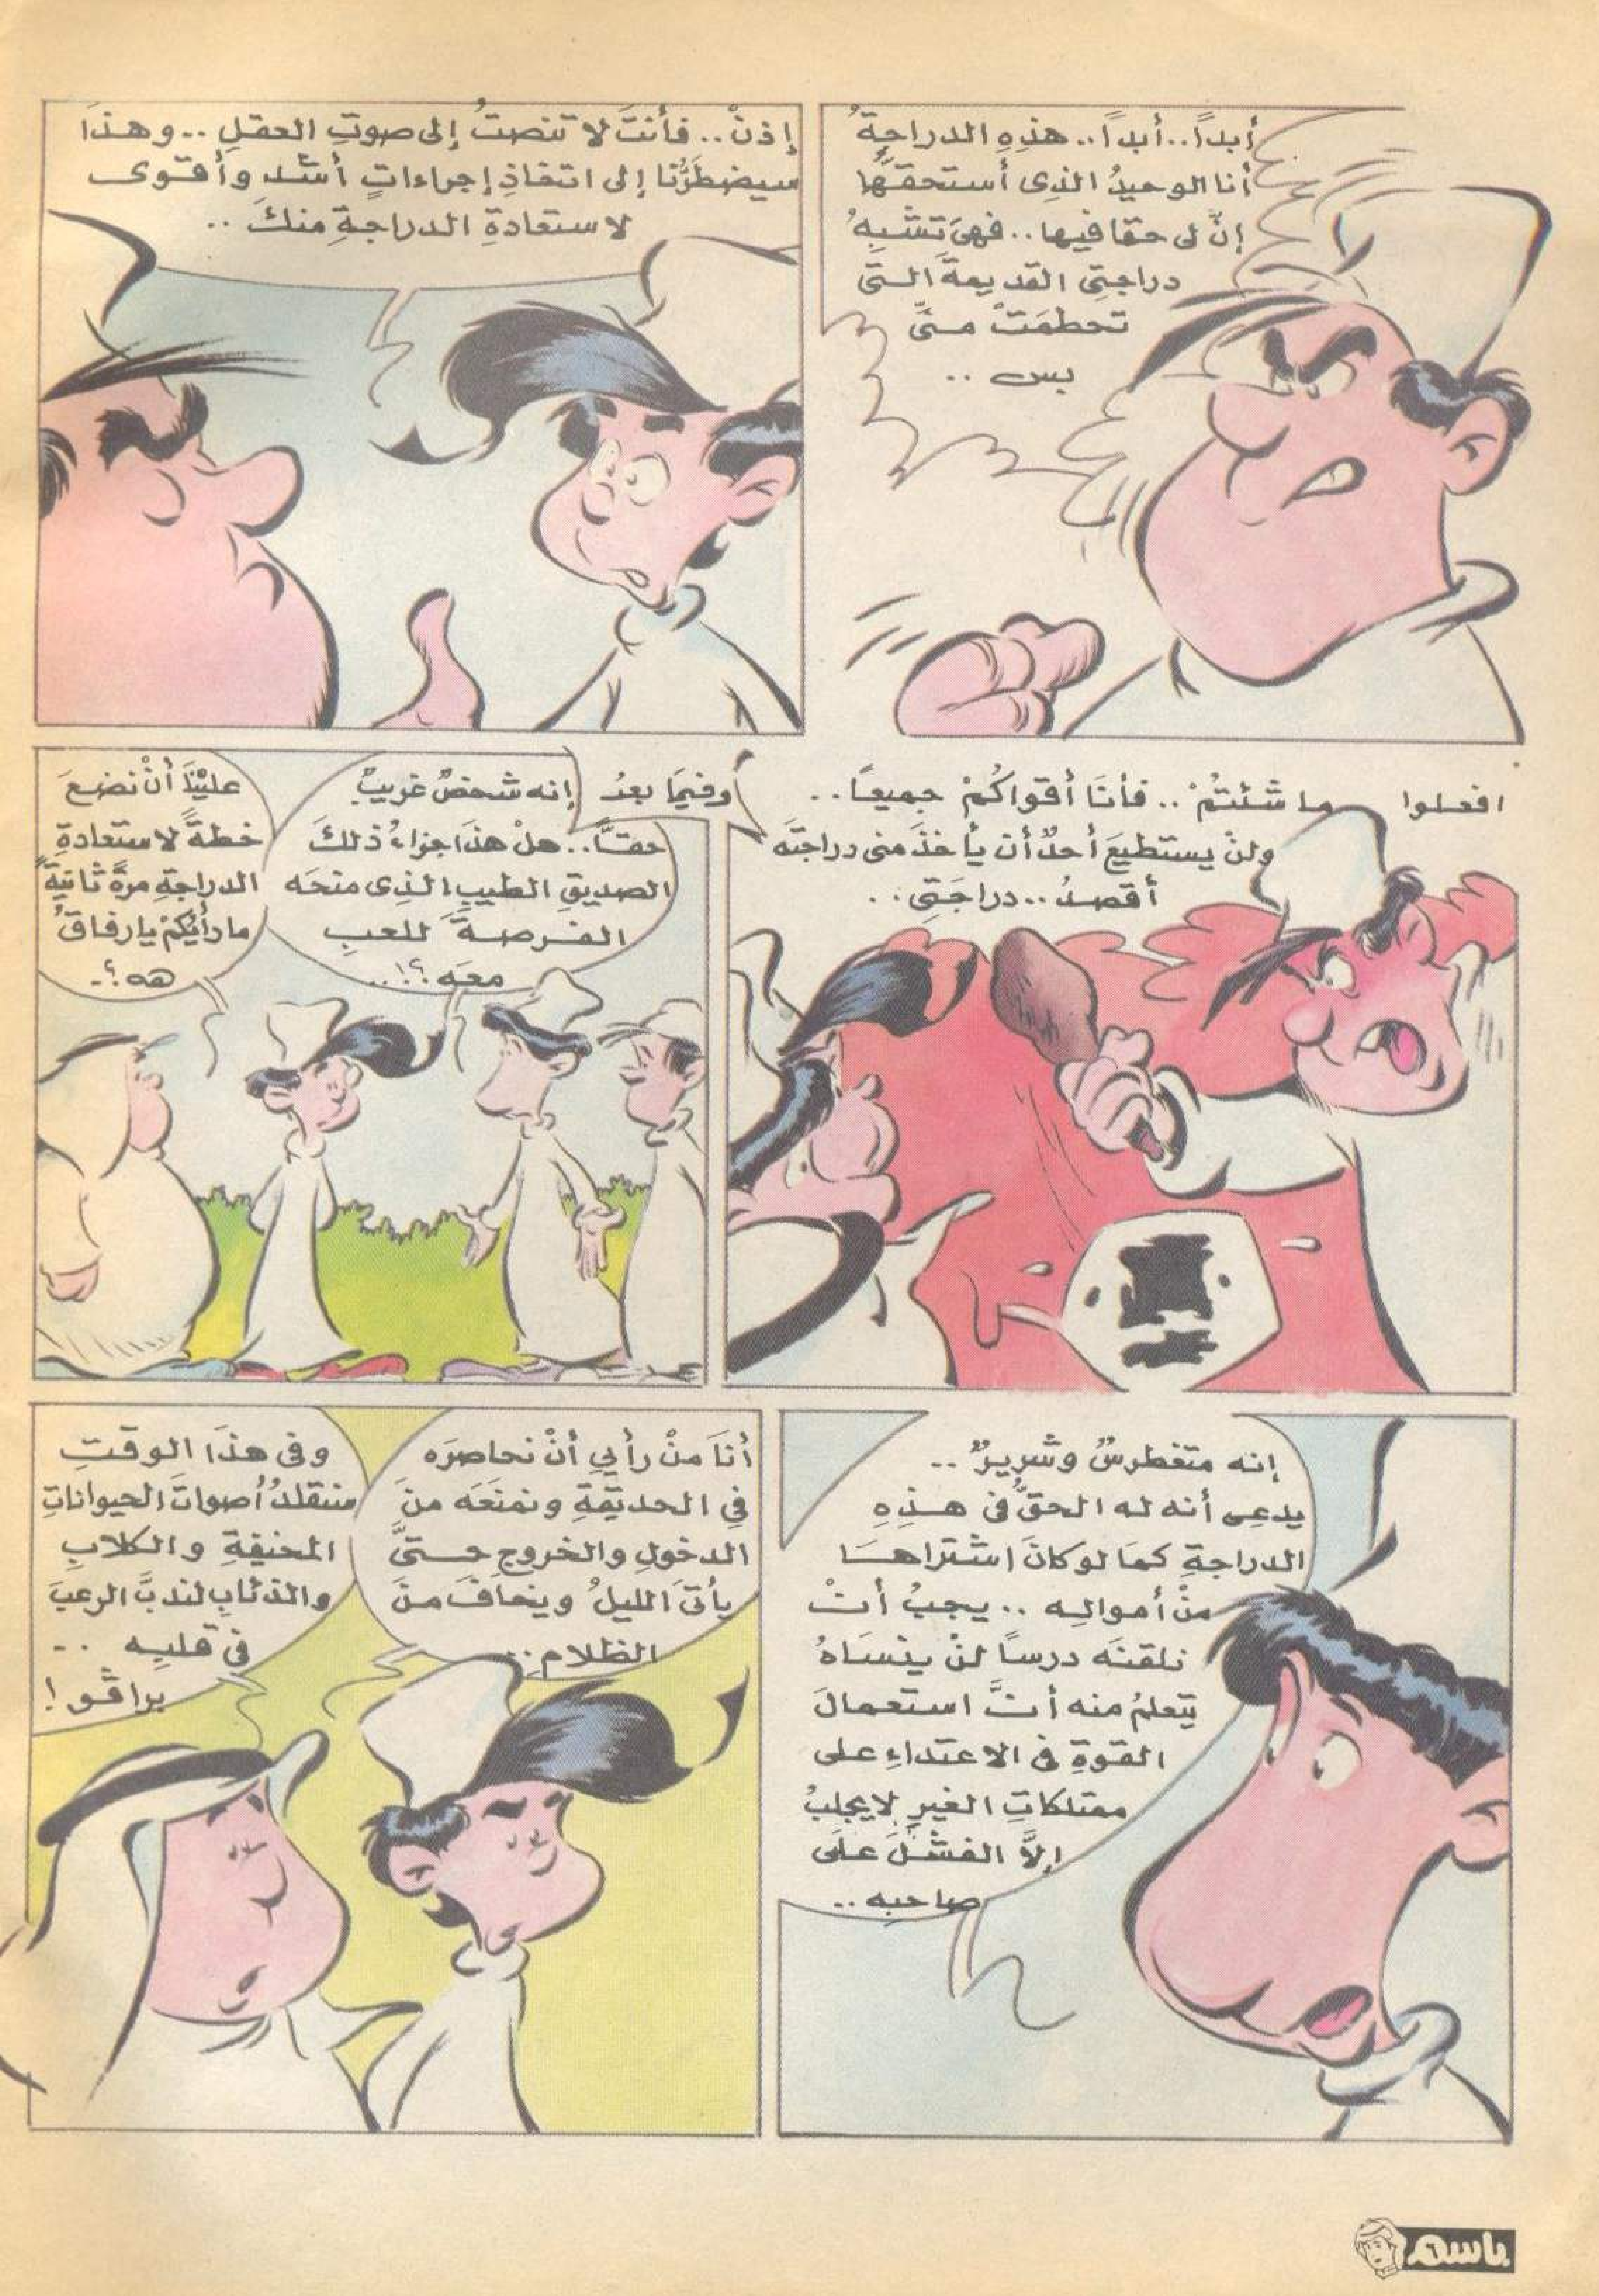 أبداً.. أبداً.. هذِهِ الدراجةُ
أنا الوحيدُ الذى أستحقُّها
إنَّ لى حقا فيها.. فهىَ تشبِهُ
دراجتِى القديمةَ التى
تحطمَتْ منِّى
بس ..
إذنْ.. فأنتَ لا تنصتُ إلى صوتِ العقلِ.. وهذَا
سيضطَرُّنا إلى اتخاذِ إجراءاتٍ أشد وأقوى
لاستعادةِ الدراجةِ منكَ ..
افعلوا ما شئتُمْ.. فأنَا أقواكُمْ جميعًا..
ولنْ يستطيعَ أحدٌ أن يأخذَ منى دراجتَه
أقصدُ.. دراجَتِى..
وفيمَا بعدُ
إنه شخصٌ غريبٌ
حقًّا.. هلْ هذَا جزاءُ ذلكَ
الصديقِ الطيبِ الذِى منحَه
الفرصةَ للعبِ
معَه؟!..
عليْنَا أنْ نضعَ
خطةً لاستعادةِ
الدراجةِ مرةً ثانيةً
ما رأيُكُمْ يا رفاقُ
هه؟..
إنه متغطرسٌ وشريرٌ ..
يدعِى أنه له الحقُّ فى هذِهِ
الدراجةِ كمَا لو كانَ اشتراهَا
منْ أموالِه .. يجبُ أنْ
نلقنَه درسًا لنْ ينسَاهُ
يتعلمُ منه أنَّ استعمالَ
القوةِ فى الاعتداءِ على
ممتلكاتِ الغيرِ لا يجلبُ
إلاَّ الفشلَ علَى
صاحبِه ..
أنَا منْ رأيِى أنْ نحاصرَه
فِى الحديقةِ ونمنعَه منَ
الدخولِ والخروجِ حتىَّ
يأتىَ الليلُ ويخافَ منَ
الظلامِ..
وفى هذَا الوقتِ
سنقلدُ أصواتَ الحيواناتِ
المخيفةِ والكلابِ
والذئابِ لندبَّ الرعبَ
فى قلبِه ..
براڤو!
باسم